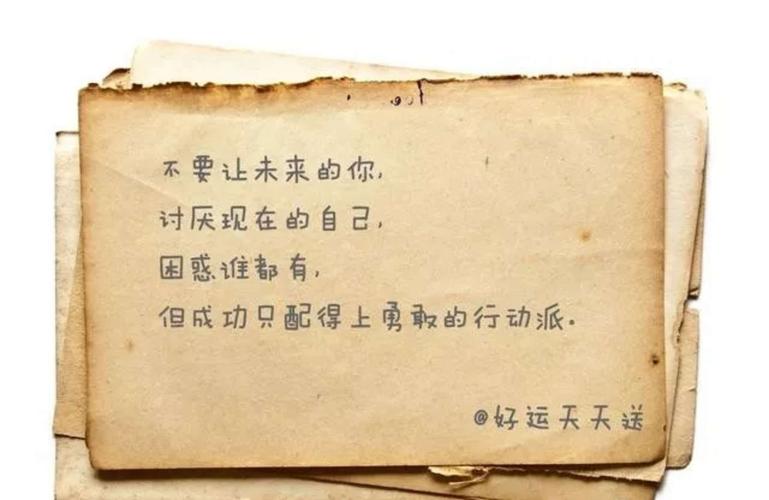 不要让未来的你,
讨厌现在的自己,
困惑谁都有,
但成功只配得上勇敢的行动派.
@好运天天送